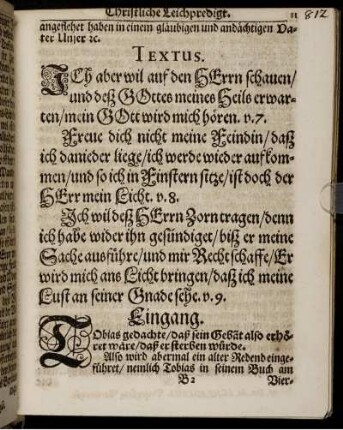 Christliche Leichpredigt. 11 812
angeflehet haben in einem gläubigen und andächtigen Va-
ter Unser ꝛc.
TEXTUS.
ICh aber wil auf den HErrn schauen/
und deß GOttes meines Heils erwar-
ten/mein GOtt wird mich hören. v. 7.
Freue dich nicht meine Feindin/daß
ich danieder liege/ich werde wieder aufkom-
men/und so ich in Finstern sitze/ist doch der
HErr mein Licht. v. 8.
Ich wil deß HErrn Zorn tragen/denn
ich habe wider ihn gesündiget/biß er meine
Sache ausführe/und mir Recht schaffe/Er
wird mich ans Licht bringen/daß ich meine
Lust an seiner Gnade sehe. v. 9.
Eingang.
TObias gedachte/daß sein Gebät also erhö-
ret wäre/daß er sterben würde.
Also wird abermal ein alter Redend einge-
führet/nemlich Tobias in seinem Buch am
B 2 Vier-